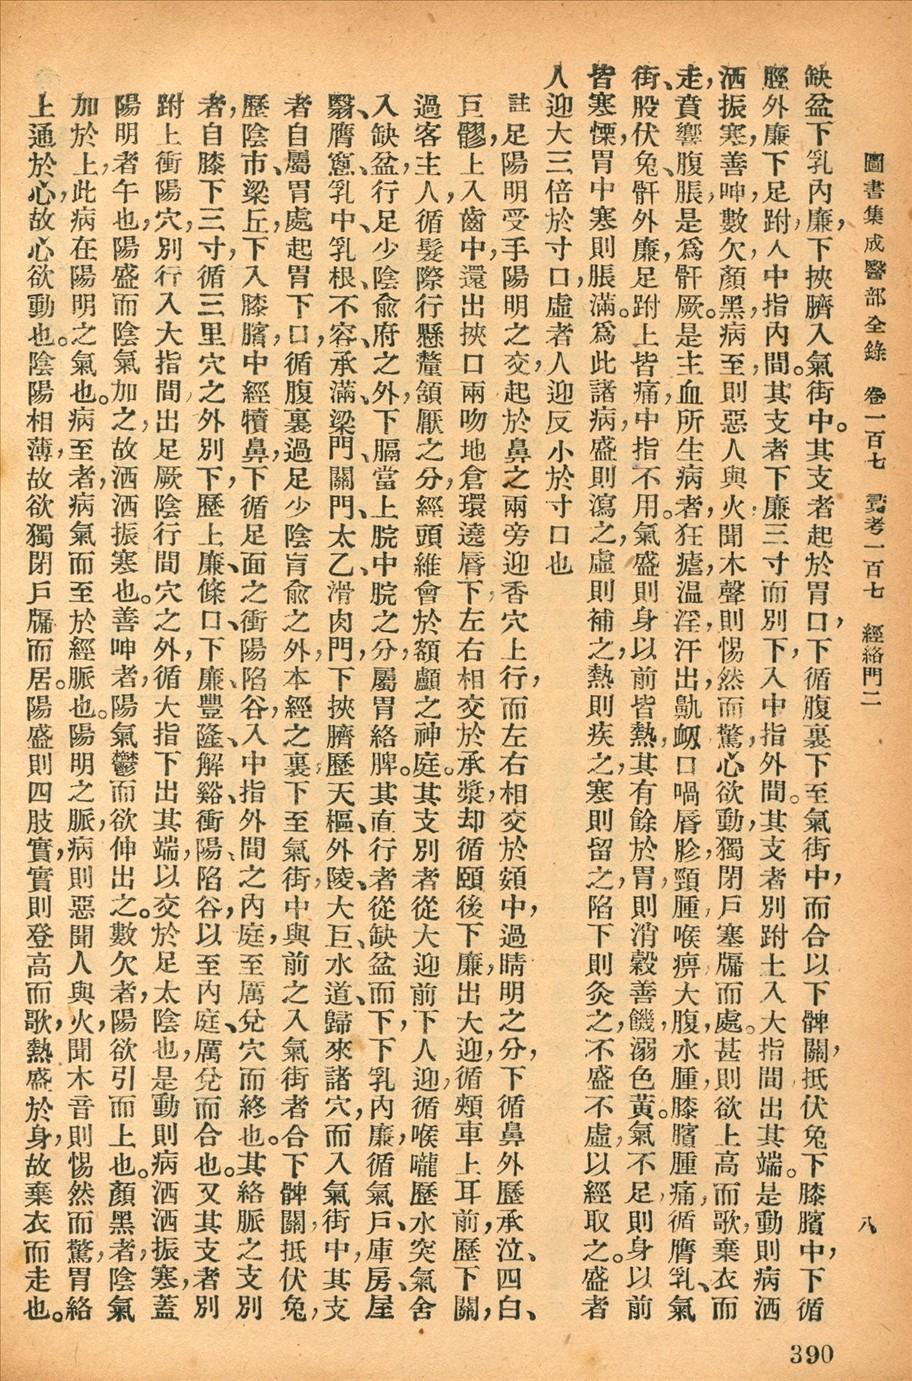 圖書集成醫部全錄　卷一百七　彙考一百七　經絡門二　八
缺盆下乳內廉，下挾臍入氣街中。其支者起於胃口，下循腹裏下至氣街中，而合以下髀關，抵伏兔下膝臏中，下循
脛外廉下足跗，入中指內間。其支者下廉三寸而別，下入中指外間。其支者別跗上入大指間出其端。是動則病洒
洒振寒，善呻數欠顏黑，病至則惡人與火聞木聲則惕然而驚，心欲動，獨閉戶塞牖而處。甚則欲上高而歌，棄衣而
走，賁響腹脹，是爲骭厥。是主血所生病者，狂瘧溫淫，汗出鼽衂，口喎唇胗，頸腫喉痹，大腹水腫，膝臏腫痛，循膺乳、氣
街、股、伏兔、骭外廉、足跗上皆痛，中指不用。氣盛則身以前皆熱，其有餘於胃，則消穀善饑，溺色黃。氣不足則身以前
皆寒慄，胃中寒則脹滿。爲此諸病，盛則瀉之，虛則補之，熱則疾之，寒則留之，陷下則灸之，不盛不虛，以經取之。盛者
人迎大三倍於寸口，虛者人迎反小於寸口也
註　足陽明受手陽明之交，起於鼻之兩旁迎香穴上行，而左右相交於頞中，過睛明之分，下循鼻外歷承泣、四白、
巨髎，上入齒中，還出挾口兩吻地倉，環遶唇下，左右相交於承漿，却循頤後下廉，出大迎，循頰車上耳前，歷下關，
過客主人，循髮際行懸釐、頷厭之分，經頭維會於額顱之神庭。其支別者從大迎前下人迎，循喉嚨歷水突、氣舍
入缺盆，行足少陰俞府之外，下膈當上脘、中脘之分，屬胃絡脾。其直行者從缺盆而下，下乳內廉，循氣戶、庫房、屋
翳、膺窻、乳中、乳根、不容、承滿、梁門、關門、太乙、滑肉門，下挾臍歷天樞、外陵、大巨、水道、歸來諸穴，而入氣街中，其支
者自屬胃處起胃下口，循腹裏，過足少陰肓俞之外，本經之裏，下至氣街中，與前之入氣街者合，下髀關，抵伏兔，
歷陰市、梁丘，下入膝臏中，經犢鼻，下循足面之衝陽、陷谷，入中指外間之內庭，至厲兌穴而終也。其絡脈之支別
者，自膝下三寸，循三里穴之外別下，歷上廉、條口、下廉、豐隆、解谿、衝陽、陷谷，以至內庭、厲兌而合也。又其支者別
跗上衝陽穴，別行入大指間出足厥陰行間穴之外，循大指下出其端，以交於足太陰也，是動則病洒洒振寒，蓋
陽明者午也，陽盛而陰氣加之，故洒洒振寒也。善呻者，陽氣鬱而欲伸出之。數欠者，陽欲引而上也。顏黑者，陰氣
加於上，此病在陽明之氣也。病至者，病氣而至於經脈也。陽明之脈，病則惡聞人與火，聞木音則惕然而驚，胃絡
上通於心，故心欲動也。陰陽相薄，故欲獨閉戶牖而居。陽盛則四肢實，實則登高而歌，熱盛於身，故棄衣而走也。
390